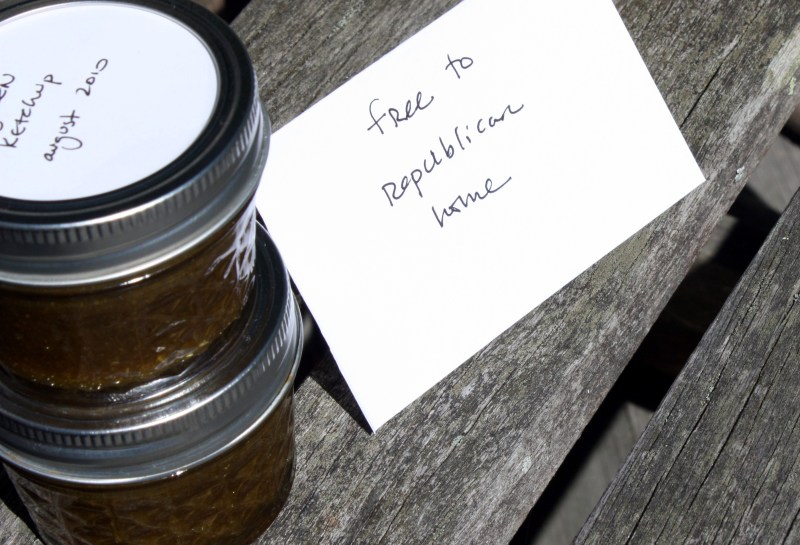 ketchup
august 2010
free to
republican
home